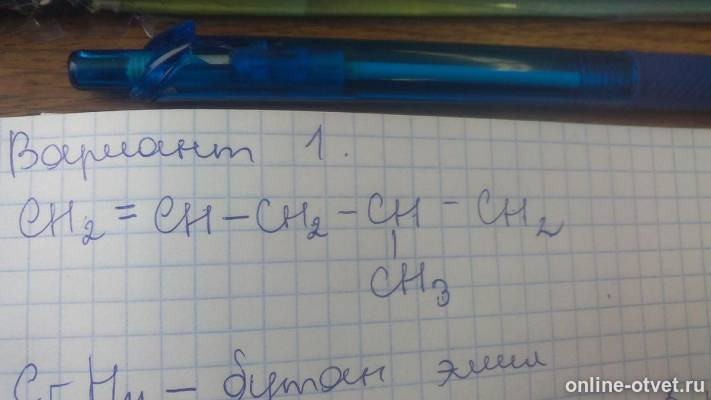 Вариант 1.
CH₂ = CH – CH₂ – CH – CH₂
|
CH₃
– бутан
online-otvet.ru